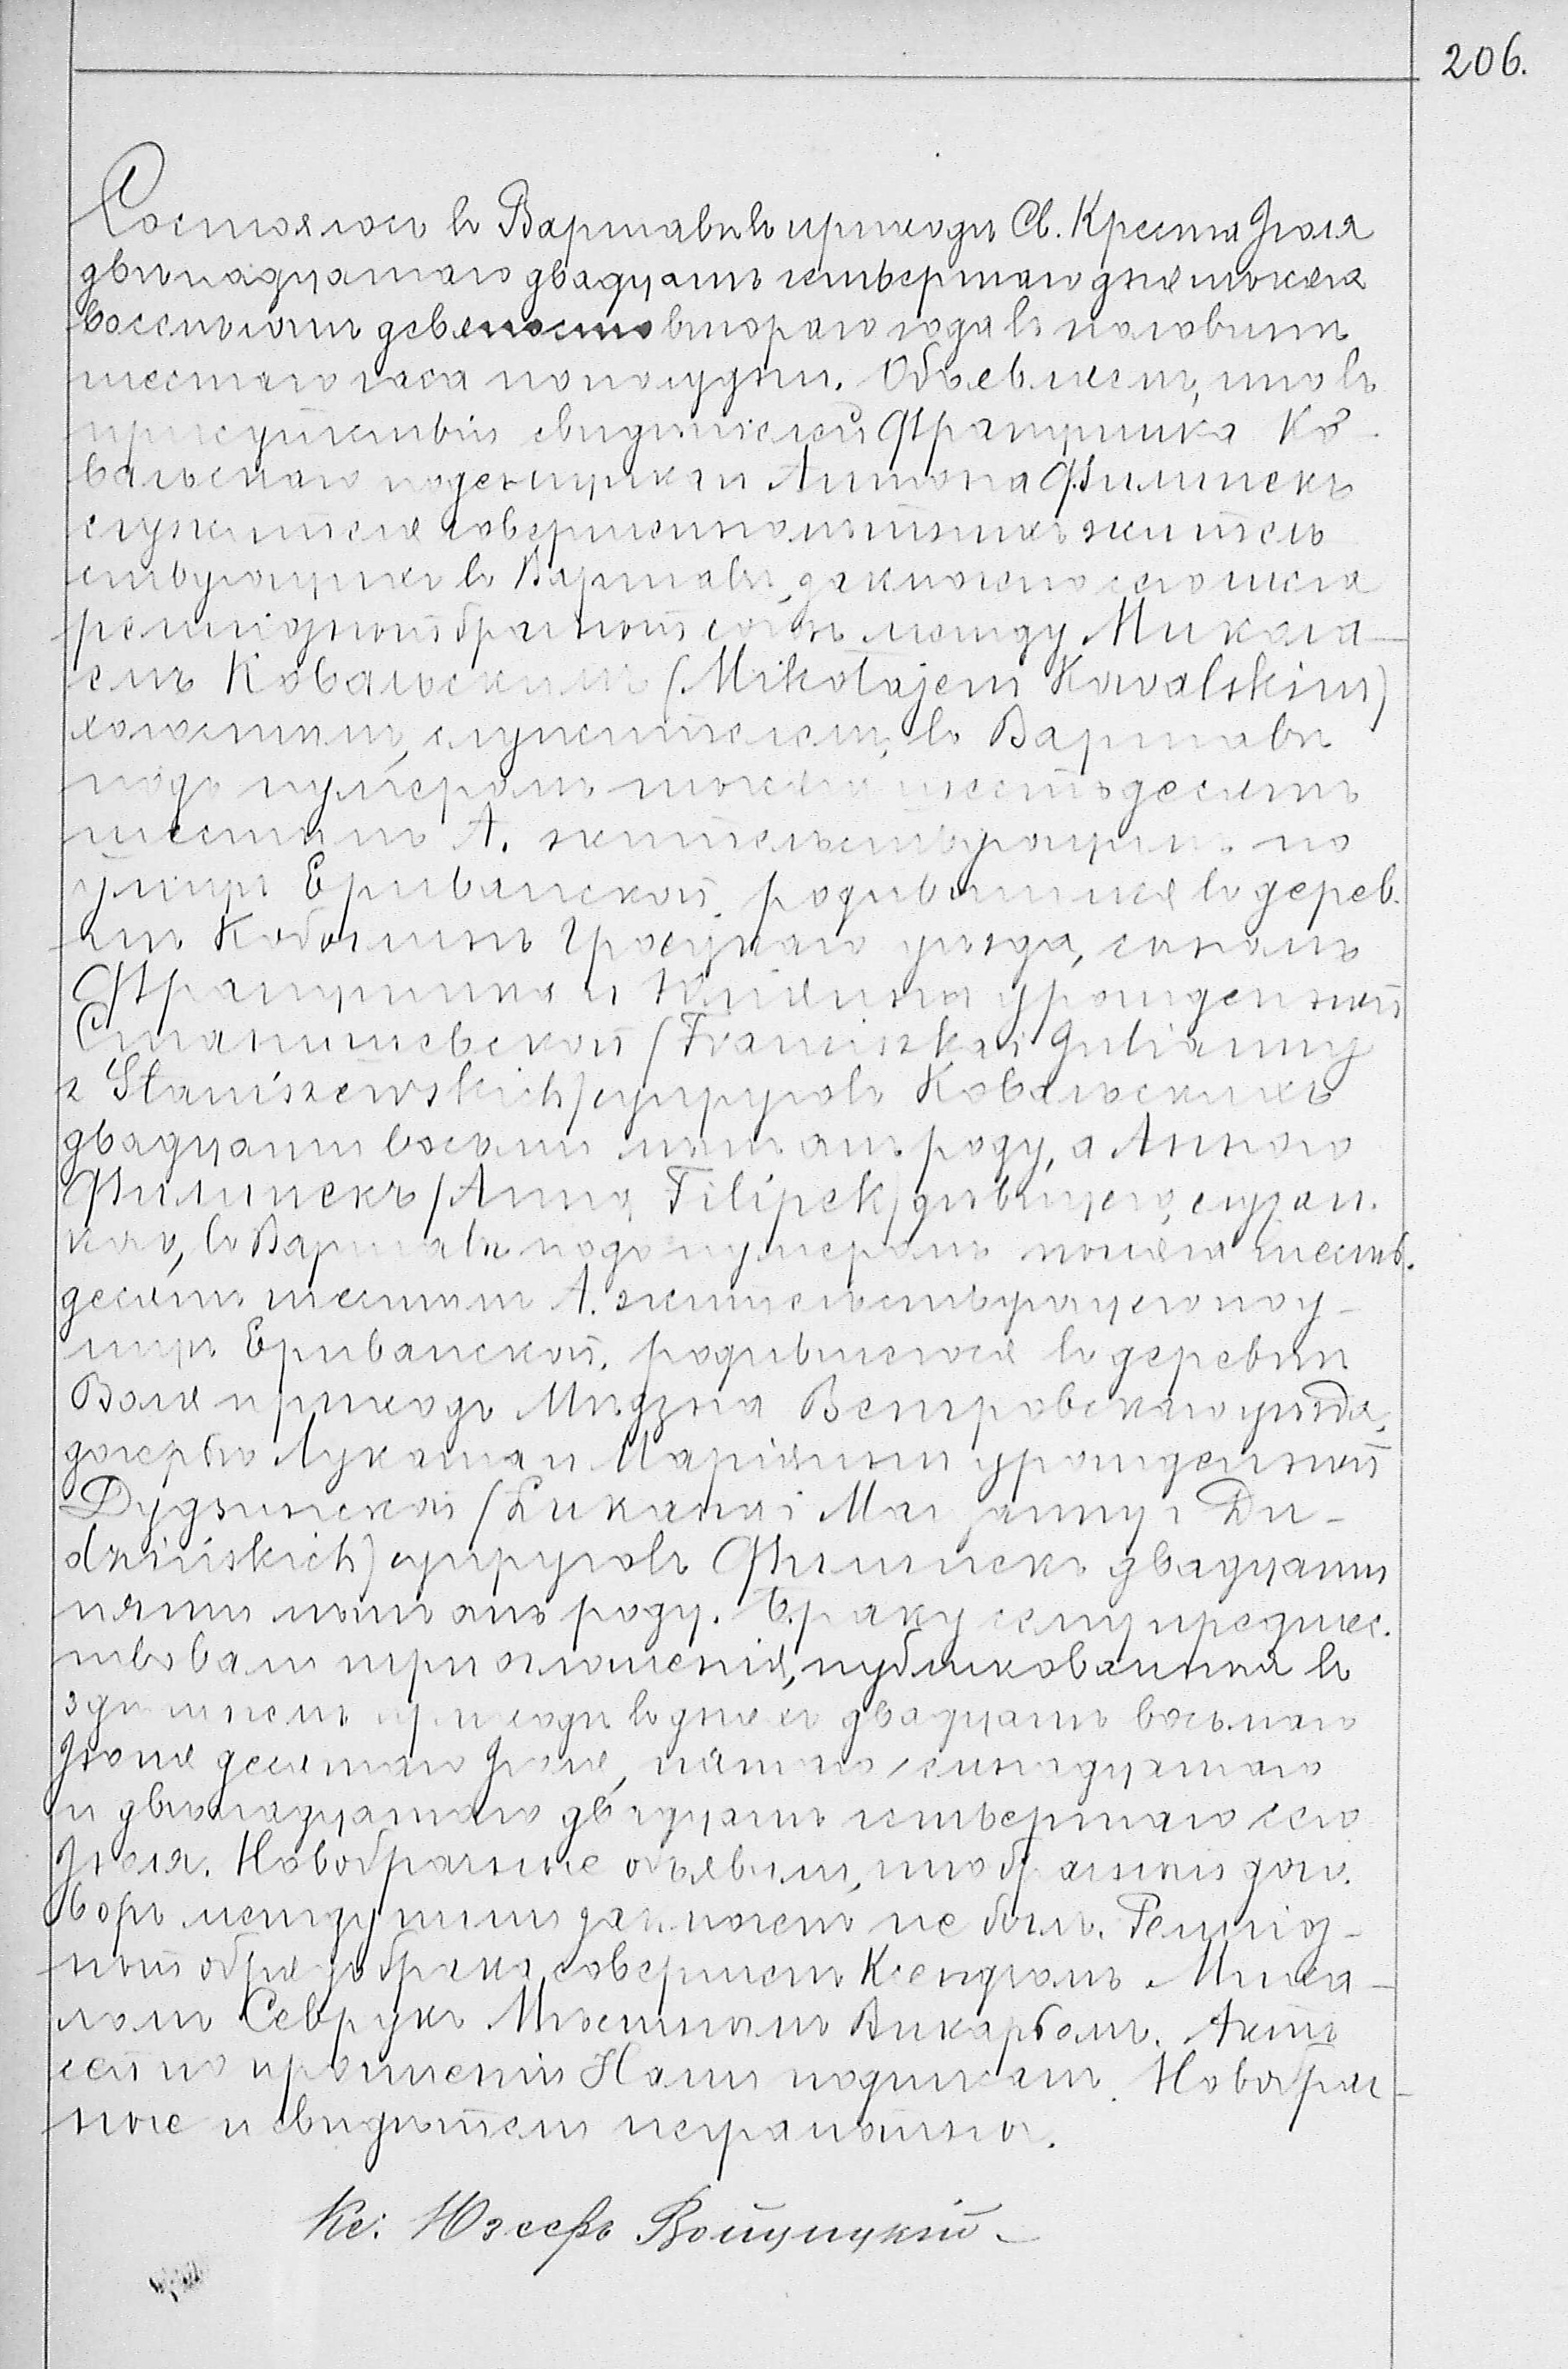 206.
Состоялось въ Варшавѣ въ приходѣ Св. Креста Іюля
двѣнадцатаго двадцать четвертаго дня тысяча
восемьсотъ девяносто втораго года въ половинѣ
шестаго часа пополудни. Объявляемъ, что въ
присутствіи свидѣтелей Францишка Ко-
вальскаго поденщика и Антона Филипекъ
служителя совершеннолѣтнихъ житель
ствующихъ въ Варшавѣ, заключено сего числа
религіозный брачный союзъ между Микола-
емъ Ковальскимъ (Mikołajem Kowalskim)
холостымъ, служителемъ, въ Варшавѣ
подъ нумеромъ тысяча шестьдесятъ
шестымъ А. жительствующимъ по
улицѣ Ериванской, родившимся въ дерев-
нѣ Кобылинѣ Гроецкаго уѣзда, сыномъ
Францишка и Юліянны урожденной
Станишевской (Franciszka i Julianny
z Staniszewskich) супруговъ Ковальскихъ
двадцати восьми лѣтъ отъ роду, а Анною
Филипекъ (Anną Filipek) дѣвицею, служан-
кою, въ Варшавѣ подъ нумеромъ тысяча шесть-
десятъ шестымъ А. жительствующею по у-
лицѣ Ериванской, родившеюся въ деревнѣ
Воля приходѣ Мидзна Венгровскаго уѣзда,
дочерью Лукаша и Маріянны урожденной
Дудзинской (Łukasza i Maryanny z Du-
dzińskich) супруговъ Филипекъ двадцати
пяти лѣтъ отъ роду. Браку сему предшес-
твовали три оглашенія, публикованныя въ
здѣшнемъ приходѣ въ дняхъ двадцать восьмаго
Іюня десятаго Іюля, пятаго семнадцатаго
и двѣнадцатаго двадцать четвертаго сего
Іюля. Новобрачные объявили, что брачный дого-
воръ между ними заключенъ не былъ. Религіоз-
ный обрядъ брака совершенъ Ксендзомъ Миха-
ломъ Севрукъ Мѣстнымъ Викарьемъ. Актъ
сей по прочтеніи Нами подписанъ. Новобрач-
ные и свидѣтели неграмотны.
Кс: Юзефъ